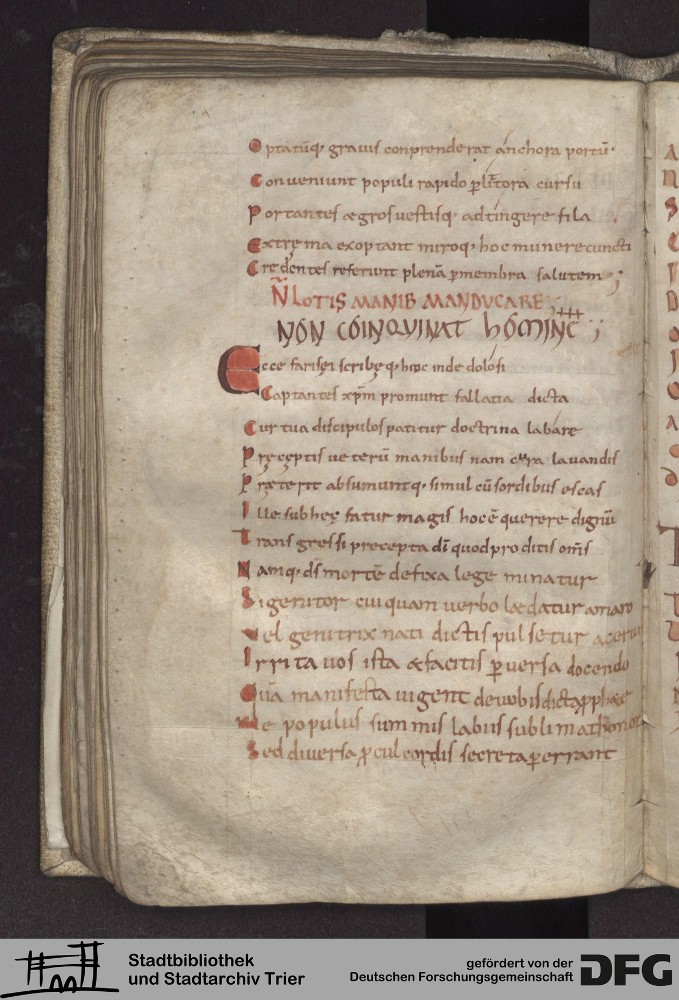 Optatūq; grauis conprenderat anchora portū·
Conveniunt populi rapido p litora cursu
Portantes ægros vestisq; adtingere fila
Extrema exoptant miroq; hoc munere cuncti
Credentes referunt plenā p membra salutem;
N̄ LOTIS MANIB MANDUCARE;
NON COINQUINAT hOMINĒ;
Ecce farisęi scribęq; hoc inde dolosi
Captantes xp̄m promunt fallatia dicta
Cur tua discipulos patitur doctrina labare
Pręceptis veterū manibus nam cura lavandis
Pręterit absumuntq; simul cū sordibus escas
Ille sub hęc fatur magis hoc ē querere dignū
Transgressi precepta dī quod proditis om̄s
Namq; d̄s mortē defixa lege minatur
Si genitor cuiquam verbo lædatur amaro
Vel genitrix nati dictis pulsetur
Irrita vos ista æ facitis pversa docendo
Quā manifesta vigent de vobis dicta pphetæ
Me populus summis labiis sublimat honor
Sed diversa pcul cordis secreta perrant
Stadtbibliothek
und Stadtarchiv Trier
gefördert von der
Deutschen Forschungsgemeinschaft
DFG